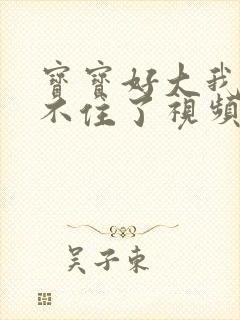 寶寶好大我
不住了視頻
吴子東